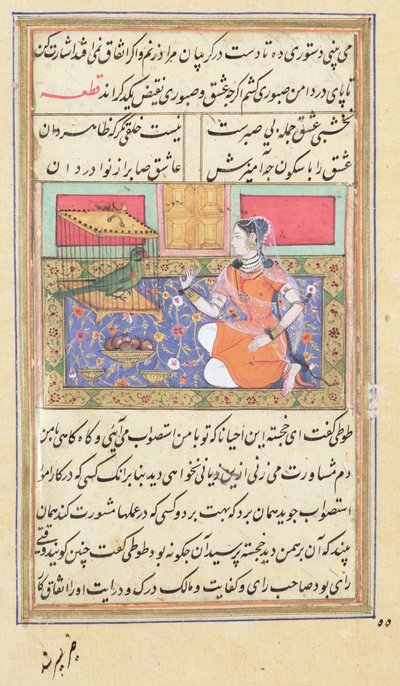 می بینی دستوری ده تا دست در گریبان مراد زنم و اگر اتفاق نمی افتد اشارت کن
تا پای در دامن صبوری کشم اگرچه عشق و صبوری نقیض یکدیگراند قطعه
نخشبی عشق جمله بی صبرست نیست خلقی مگر که ظاهر دان
عشق را با سکون چه آمیزش عاشق صابر از نوادر دان
طوطی گفت ای خجسته این احیانا که تو با من استصواب می آیی و گاه گاهی با من
دم مشاورت می زنی ازین زیانی نخواهی دید بنابرانک کسی که در کارها
استصواب جوید همان برد که بهت برد و کسی که در عملها مشورت کند همان
بیند که آن برهمن دید خجسته پرسید آن چگونه بود طوطی گفت چنین گویند وقتی
رای بود صاحب رای و کفایت و مالک درک و درایت او را اتفاق کار